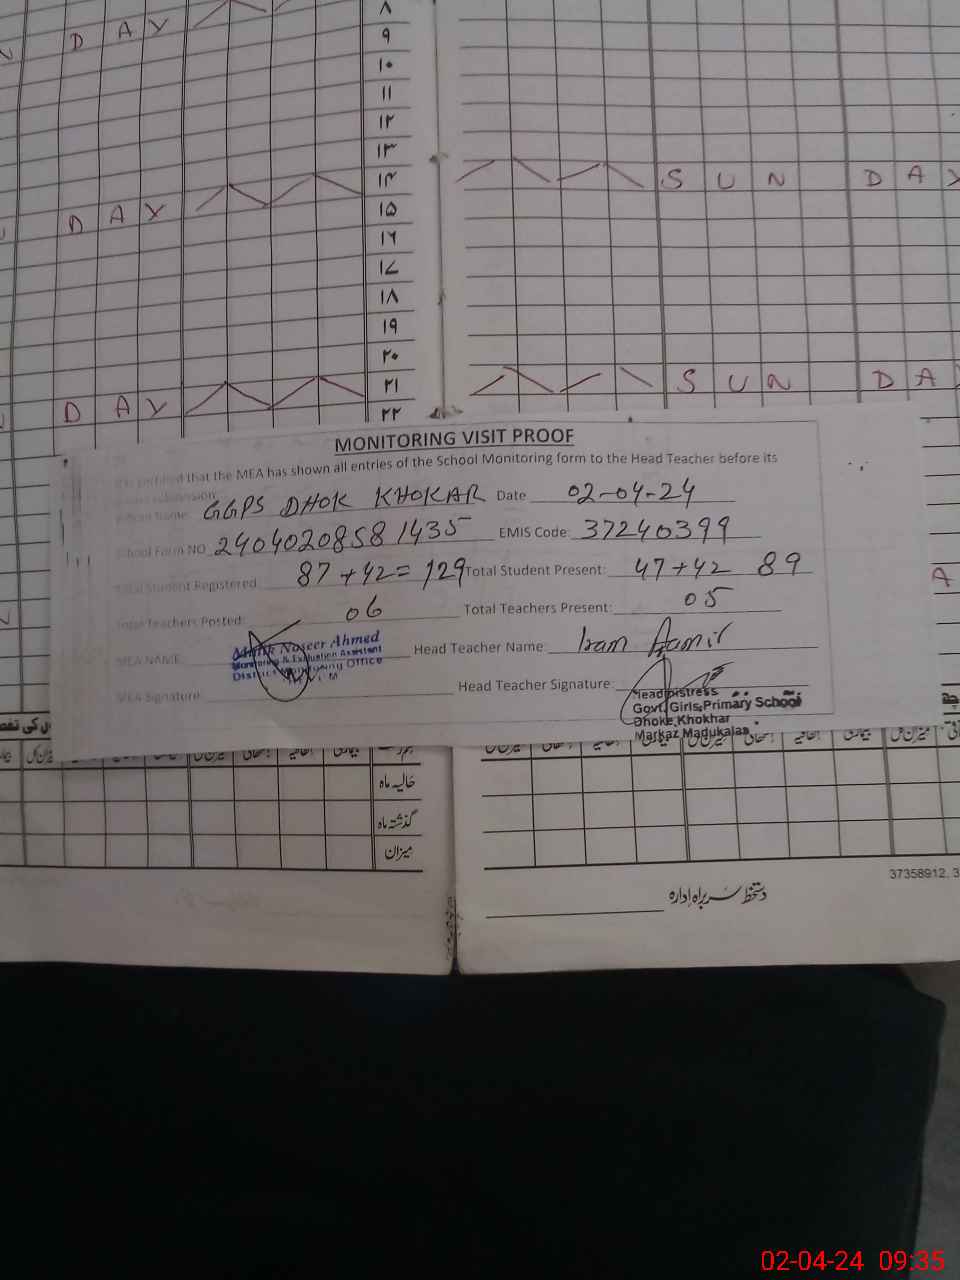 ٨
D A Y
٩
١٠
١١
١٢
١٣
١٤ S U N D A Y
D A Y ١٥
١٦
١٧
١٨
١٩
٢٠
٢١ S U N D A
D A Y ٢٢
MONITORING VISIT PROOF
that the MEA has shown all entries of the School Monitoring form to the Head Teacher before its
submission
Name: GGPS DHOK KHOKAR Date 02-04-24
School Form NO 2404020858 1435 EMIS Code: 37240399
Total Student Registered: 87+42=129 Total Student Present: 47+42 89
A
Total Teachers Posted: 06 Total Teachers Present: 05
MEA NAME: Malik Naseer Ahmed Head Teacher Name: Iram Aamir
Monitoring & Evaluation Assistant
District Monitoring Office
MEA Signature: Head Teacher Signature:
Headmistress
Govt. Girls, Primary School
Dhoke Khokhar
Markaz Madukalas
حالیہ ماہ
گذشتہ ماہ
میزان
37358912, 3
دستخط سربراہ ادارہ
02-04-24 09:35